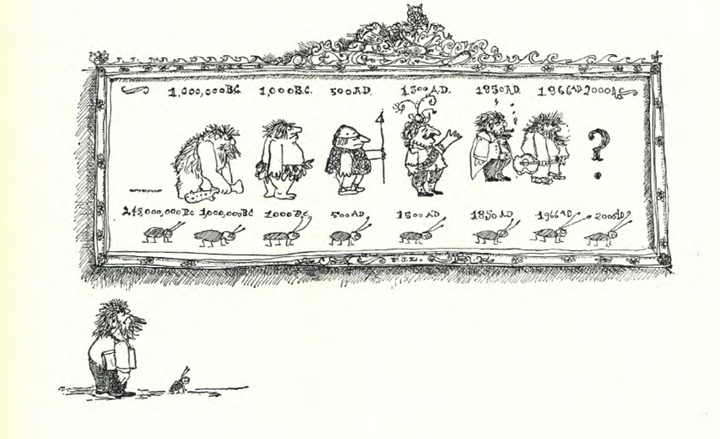 1,000,000 B.C. 1,000 B.C. 500 A.D. 1500 A.D. 1850 A.D. 1966 A.D. 2000 A.
?
245,000,000 B.C. 1,000,000 B.C. 1000 B.C. 500 A.D. 1500 A.D. 1850 A.D. 1966 A.D. 2000 A.D.